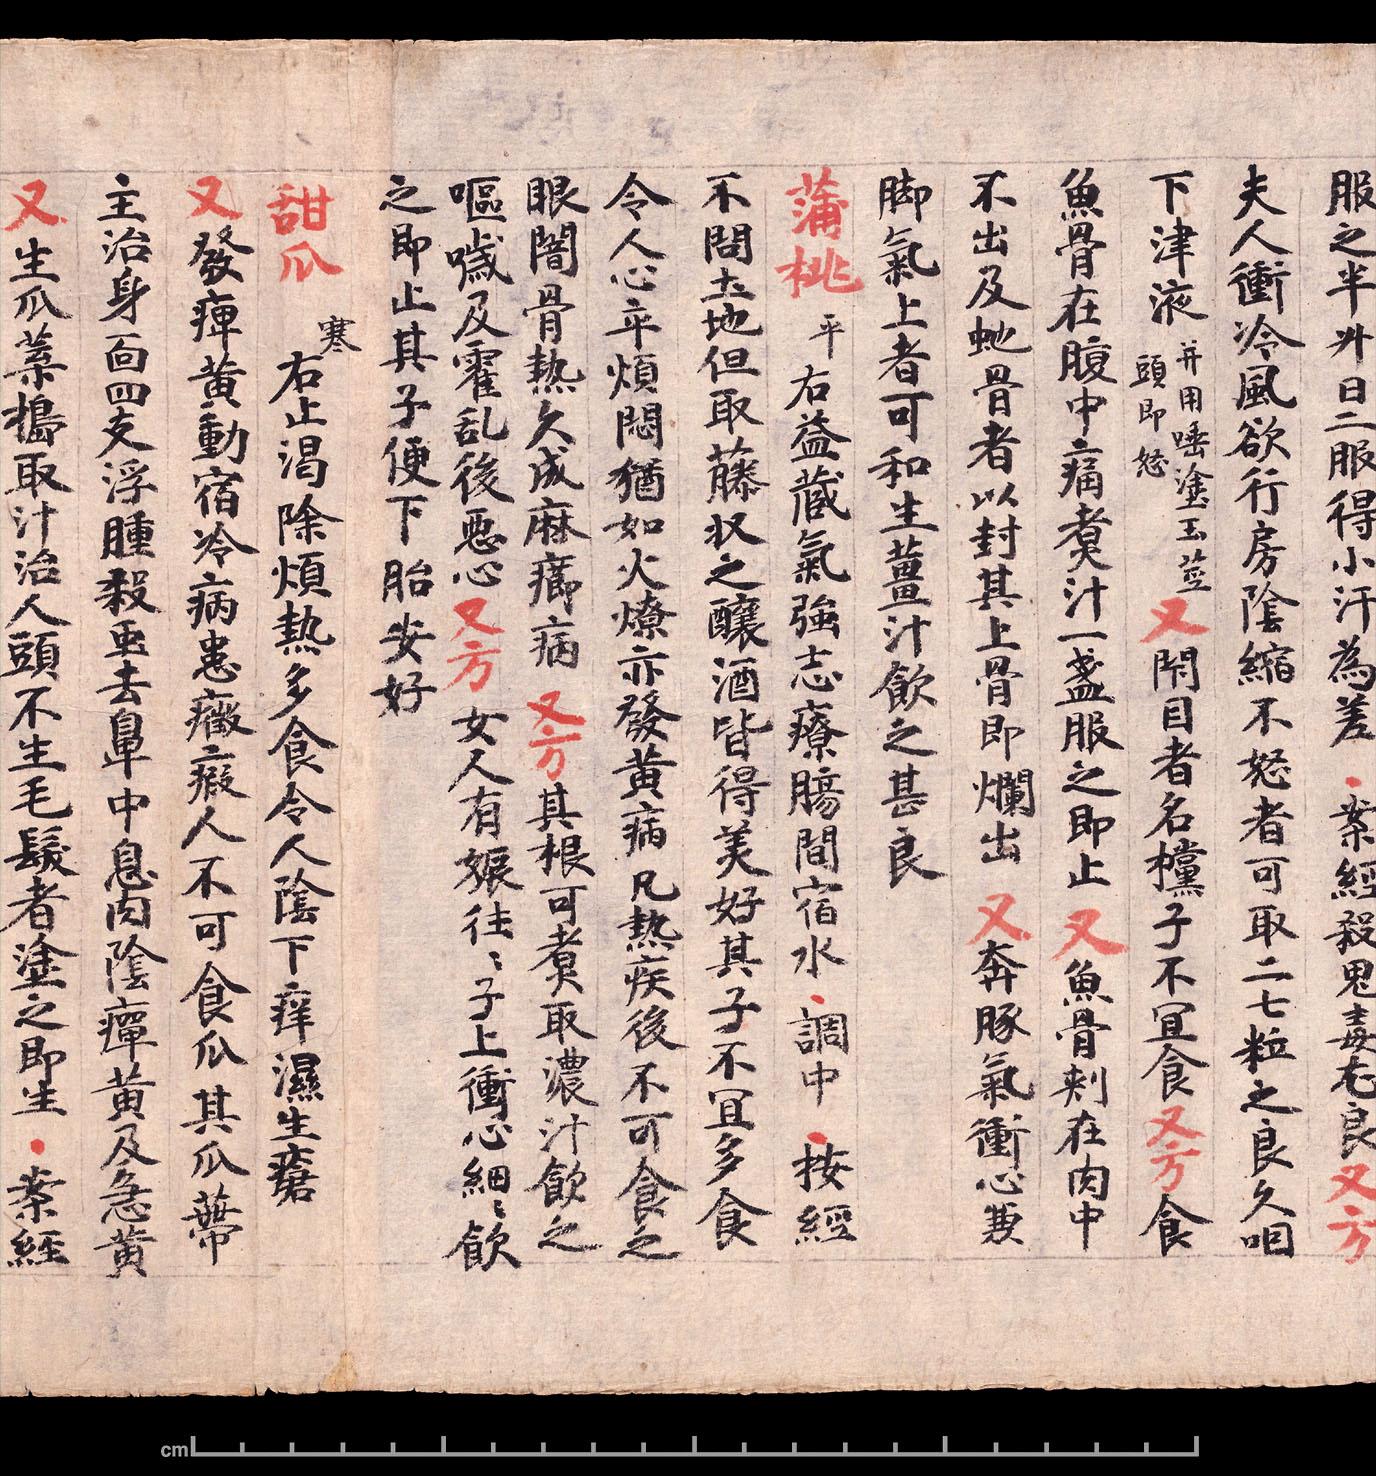 服之半升日二服得小汗為差 · 案經殺鬼毒尤良又方
夫人衝冷風欲行房陰縮不怒者可取二七粒之良久咽
下津液 并用唾塗玉莖頭即怒 又閇目者名欓子不宜食又方食
魚骨在腹中痛煑汁一盞服之即止 又魚骨刺在肉中
不出及虵骨者以封其上骨即爛出 又奔豚氣衝心兼
脚氣上者可和生薑汁飲之甚良
蒲桃 平 右益蔵氣強志療腸間宿水 · 調中 · 按經
不問土地但取藤收之釀酒皆得美好其子不宜多食
令人心卒煩悶猶如火燎亦發黄病凡熱疾後不可食之
眼闇骨熱久成麻癤病 又方其根可煑取濃汁飲之
嘔噦及霍乱後惡心又方女人有娠往〻子上衝心細〻飲
之即止其子便下胎安好
甜瓜 寒 右止渴除煩熱多食令人陰下痒濕生瘡
又發瘅黄動宿冷病患癥瘕人不可食瓜其瓜蔕
主治身面四支浮腫殺蟲去鼻中息肉陰癉黄及急黄
又生瓜葉擣取汁治人頭不生毛髮者塗之即生 · 案經